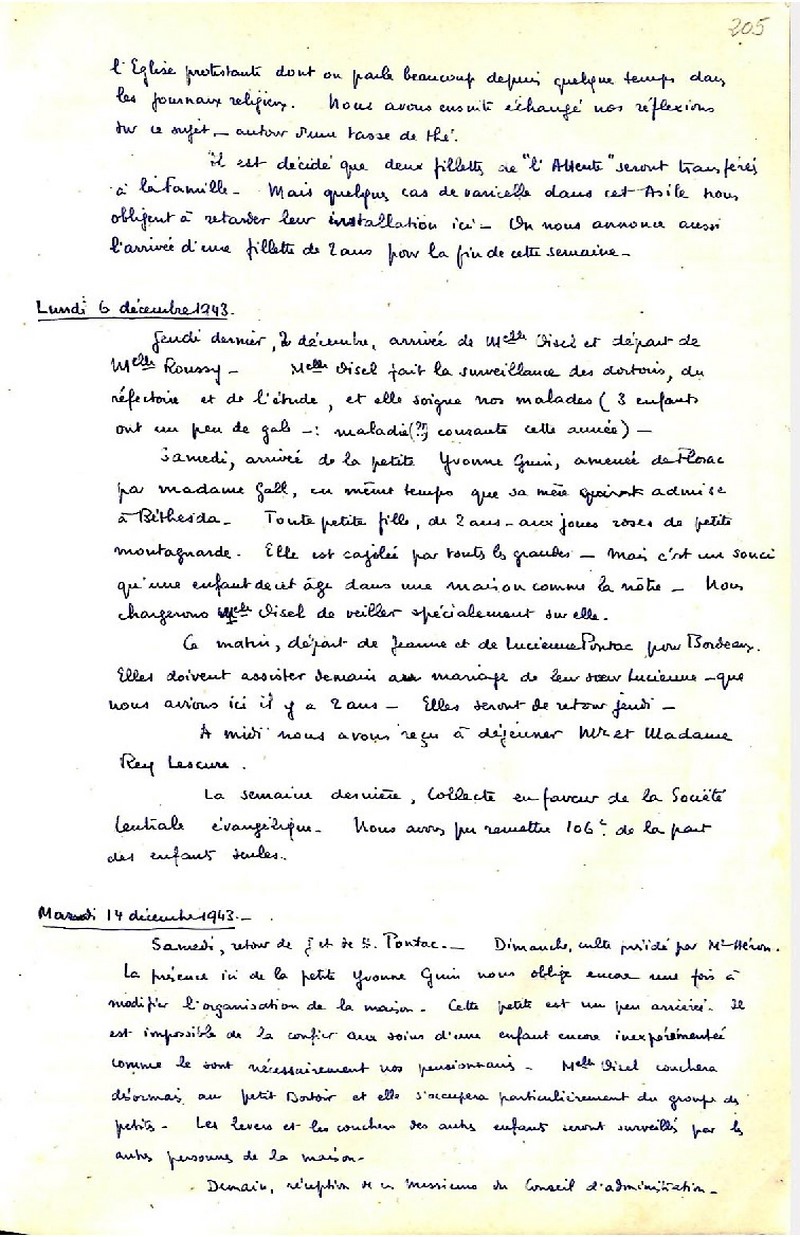 205
l'Eglise protestante dont on parle beaucoup depuis quelque temps dans
les journaux religieux. Nous avons ensuite échangé nos réflexions
sur ce sujet, — autour d'une tasse de thé.
Il est décidé que deux fillettes de "l'Attente" seront transférés
à la Famille — Mais quelques cas de varicelle dans cet Asile nous
obligent à retarder leur installation ici — On nous annonce aussi
l'arrivée d'une fillette de 2 ans pour la fin de cette semaine —
Lundi 6 décembre 1943.
Jeudi dernier, 2 décembre, arrivée de Melle Disel et départ de
Melle Roussy — Melle Disel fait la surveillance des dortoirs, du
réfectoire et de l'étude, et elle soigne nos malades (3 enfants
ont un peu de gale — : maladie (?) courante cette année) —
Samedi, arrivée de la petite Yvonne Guin, amenée de Florac
par madame Gall, en même temps que sa mère admise
à Béthesda — Toute petite fille, de 2 ans — aux joues roses de petite
montagnarde. Elle est cajolée par toutes les grandes — mais c'est un souci
qu'une enfant de cet âge dans une maison comme la nôtre — Nous
chargerons Melle Disel de veiller spécialement sur elle.
Ce matin, départ de Jeanne et de Lucienne Pontac pour Bordeaux.
Elles doivent assister demain au mariage de leur sœur Lucienne — que
nous avions ici il y a 2 ans — Elles seront de retour jeudi —
A midi nous avons reçu à déjeuner Mr et Madame
Rey Lescure.
La semaine dernière, Collecte en faveur de la Société
Centrale évangélique — Nous avons pu remettre 106 f. de la part
des enfants seules.
Mardi 14 décembre 1943. —
Samedi, retour de J et de L. Pontac. — Dimanche, culte présidé par Mr Héron.
La présence ici de la petite Yvonne Guin nous oblige encore une fois à
modifier l'organisation de la maison — Cette petite est un peu arriérée. Il
est impossible de la confier aux soins d'une enfant encore inexpérimentée
comme le sont nécessairement nos pensionnaires — Melle Disel couchera
désormais au petit Dortoir et elle s'occupera particulièrement du groupe des
petits — Les levers et les couchers des autres enfants seront surveillés par les
autres personnes de la maison —
Demain, réception de ces Messieurs du Conseil d'administration —